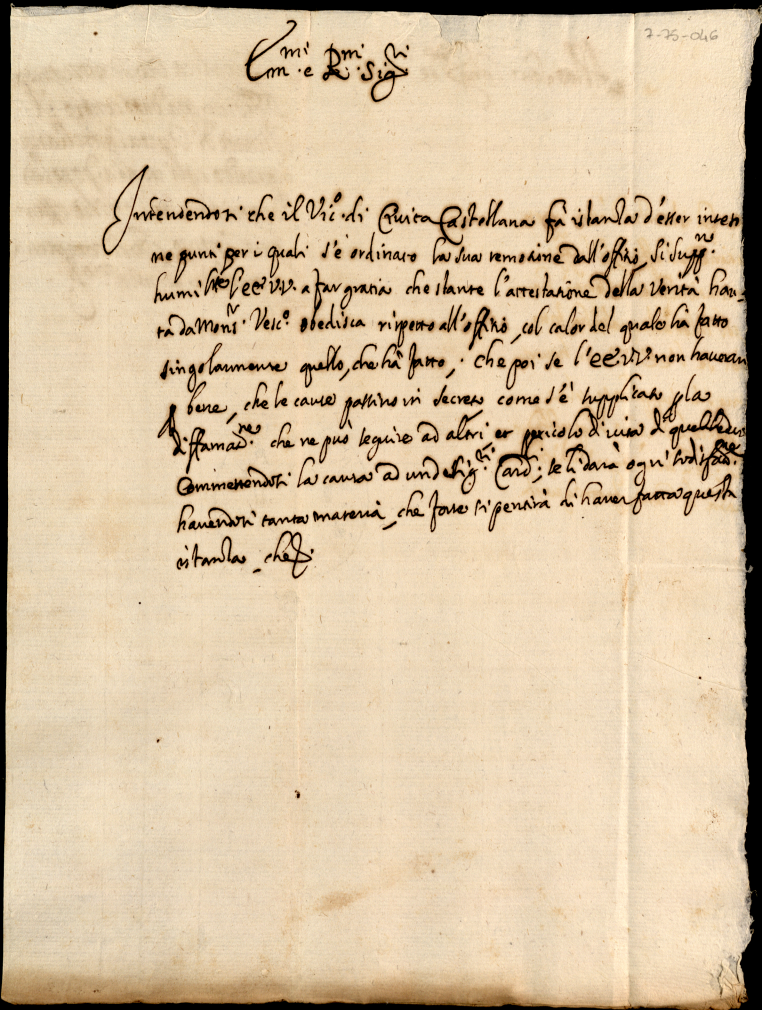 7-75-046
Em.mi e R.mi Sig.ri
Intendendosi che il Vic.o di Civita Castellana fà istanza d'esser inteso
ne punti per i quali s'è ordinato la sua remotione dall'offitio, si supp.
humil.te l'EE VV. a far gratia che stante l'attestatione della verità hau-
ta da Mons.r Vesc.o obedisca rispetto all'offitio, col calor del quale hà fatto
singolarmente quello, che hà fatto, che poi se l'EE VV non haveran
p bene, che le cause passino in secreto come s'è supplicato p la
diffamat.ne che ne può seguire ad altri, et pericolo di vita di quelle
Commettendosi la causa ad uno de Sig.ri Card.i, se li darà ogni sodisfat.ne
havendosi tanta materia, che forse si pentirà di haver fatta questa
istanza, che